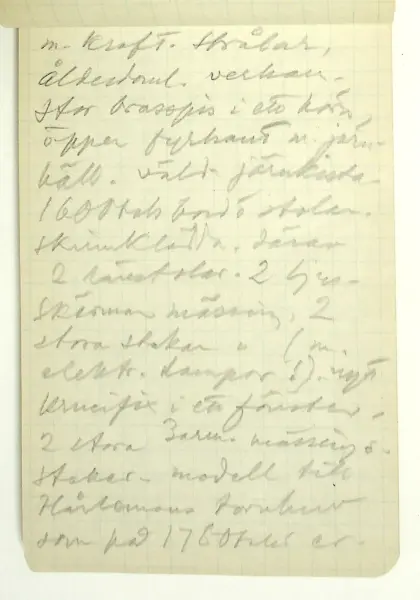 m. kraft. strålar,
ålderdoml. verkan.
stor brasspis i ett hörn,
öppen fyrkant m. järn-
häll. väld. järnkista.
1600tals bord o stolar.
skinnklädda. därav
2 länstolar. 2 ljus-
skärmar mässing, 2
stora stakar " (m.
elektr. lampor !). nytt
krucifix i ett fönster.
2 stora 3arm. mässing s-
stakar. modell till
Hårlemans tornhuv
som på 1760talet er-